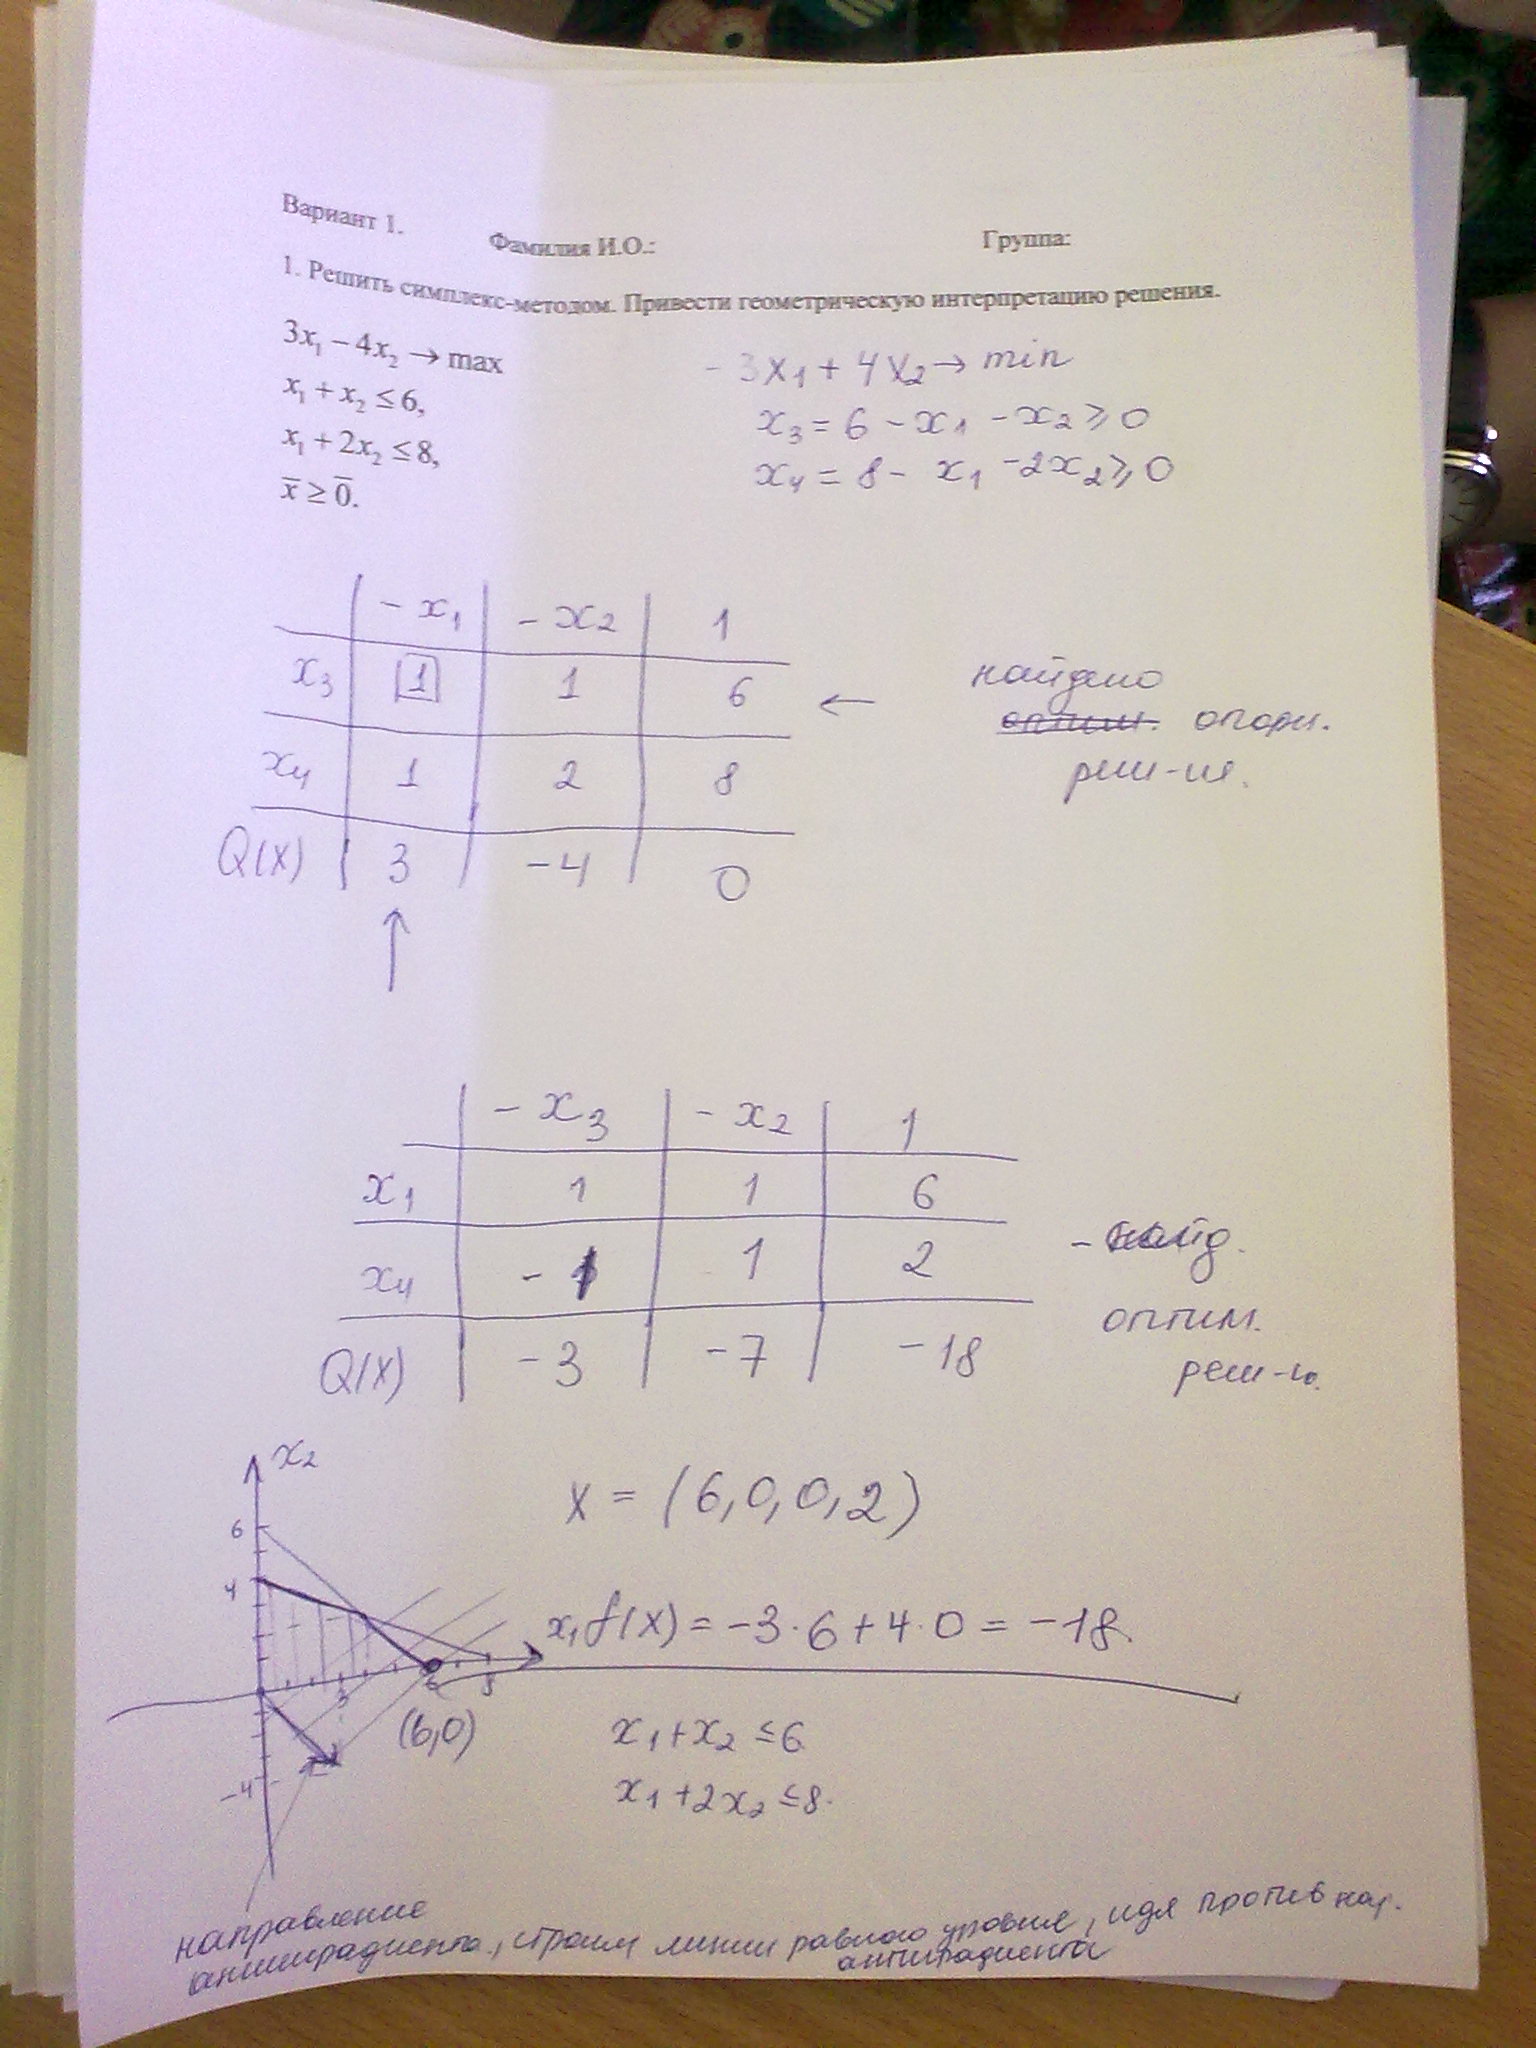 Вариант 1.
Фамилия И.О.: Группа:
1. Решить симплекс-методом. Привести геометрическую интерпретацию решения.
3x₁ − 4x₂ → max
x₁ + x₂ ≤ 6,
x₁ + 2x₂ ≤ 8,
x̅ ≥ 0̅.
-3x₁ + 4x₂ → min
x₃ = 6 - x₁ - x₂ ≥ 0
x₄ = 8 - x₁ - 2x₂ ≥ 0
-x₁ -x₂ 1
x₃ 1 1 6 ←
x₄ 1 2 8
Q(x) 3 -4 0
↑
найдено
оптим. опорн.
реш-ие.
-x₃ -x₂ 1
x₁ 1 1 6
x₄ -1 1 2
Q(x) -3 -7 -18
- найд.
оптим.
реш-ю.
x₂
6
4
3 6 8
-4
(6,0)
x₁
x = (6,0,0,2)
f(x) = -3·6+4·0 = -18.
x₁+x₂ ≤6
x₁+2x₂ ≤8.
направление
антиградиента, строим линии равного уровня, идя против нап.
антиградиента